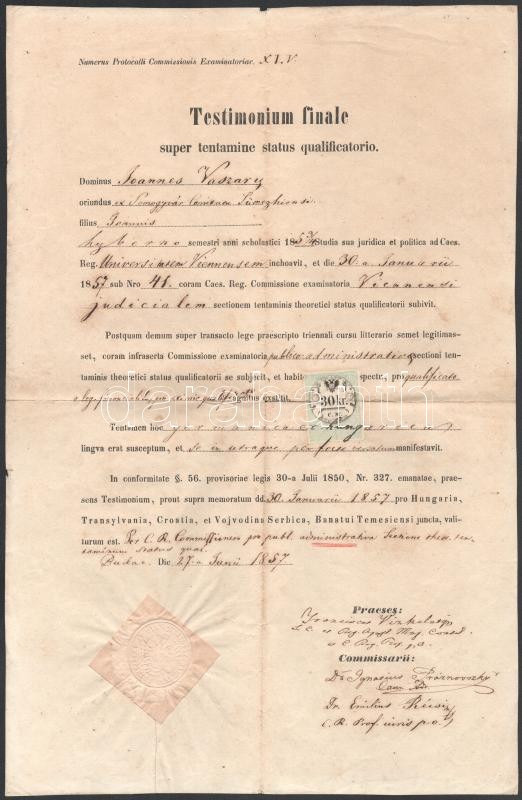 Numerus Protocolli Commissionis Examinatoriae. XLV.
Testimonium finale
super tentamine status qualificatorio.
Dominus Joannes Vaszary
oriundus ex Somogyvár Comitatu Simeghiensi
filius Joannis
hyberno semestri anni scholastici 185 3/4 Studia sua juridica et politica ad Caes.
Reg. Universitatem Viennensem inchoavit, et die 30-a Januarii
1857 sub Nro 41. coram Caes. Reg. Commissione examinatoria Viennensi
judicialem sectionem tentaminis theoretici status qualificatorii subivit.
Postquam demum super transacto lege praescripto triennali cursu litterario semet legitimas-
set, coram infraserta Commissione examinatoria publico administrativae sectioni ten-
taminis theoretici status qualificatorii se subjecit, et habito respectu, pro qualificato
agnitus exstitit.
30 kr.
Tentamen hoc germanica et hungarica
lingva erat susceptum, et se in utraque perfecte versatum manifestavit.
In conformitate §. 56. provisoriae legis 30-a Julii 1850, Nr. 327. emanatae, prae-
sens Testimonium, prout supra memoratum dd. 30. Januarii 1857 pro Hungaria,
Transylvania, Croatia, et Vojvodina Serbica, Banatui Temesiensi juncta, vali-
turum est. Per C. R. Commissionem pro publ. administrativa Sectione theor. ten-
taminum status qual.
Budae. Die 27-a Junii 1857.
Praeses:
Franciscus
Commissarii:
Dr Ignatius
Dr. Emilius Récsi
C. R. Prof. juris p. o.
darabanth